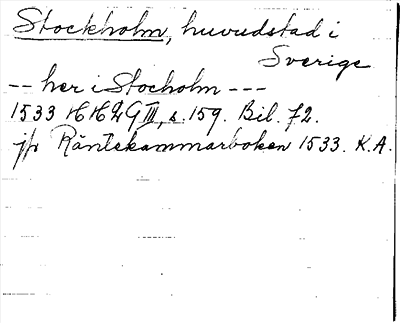 Stockholm, huvudstad i
Sverige
-- her i Stocholm ---
1533 HH2GIII, s. 159. Bil. 72.
jfr Räntekammarboken 1533. K.A.